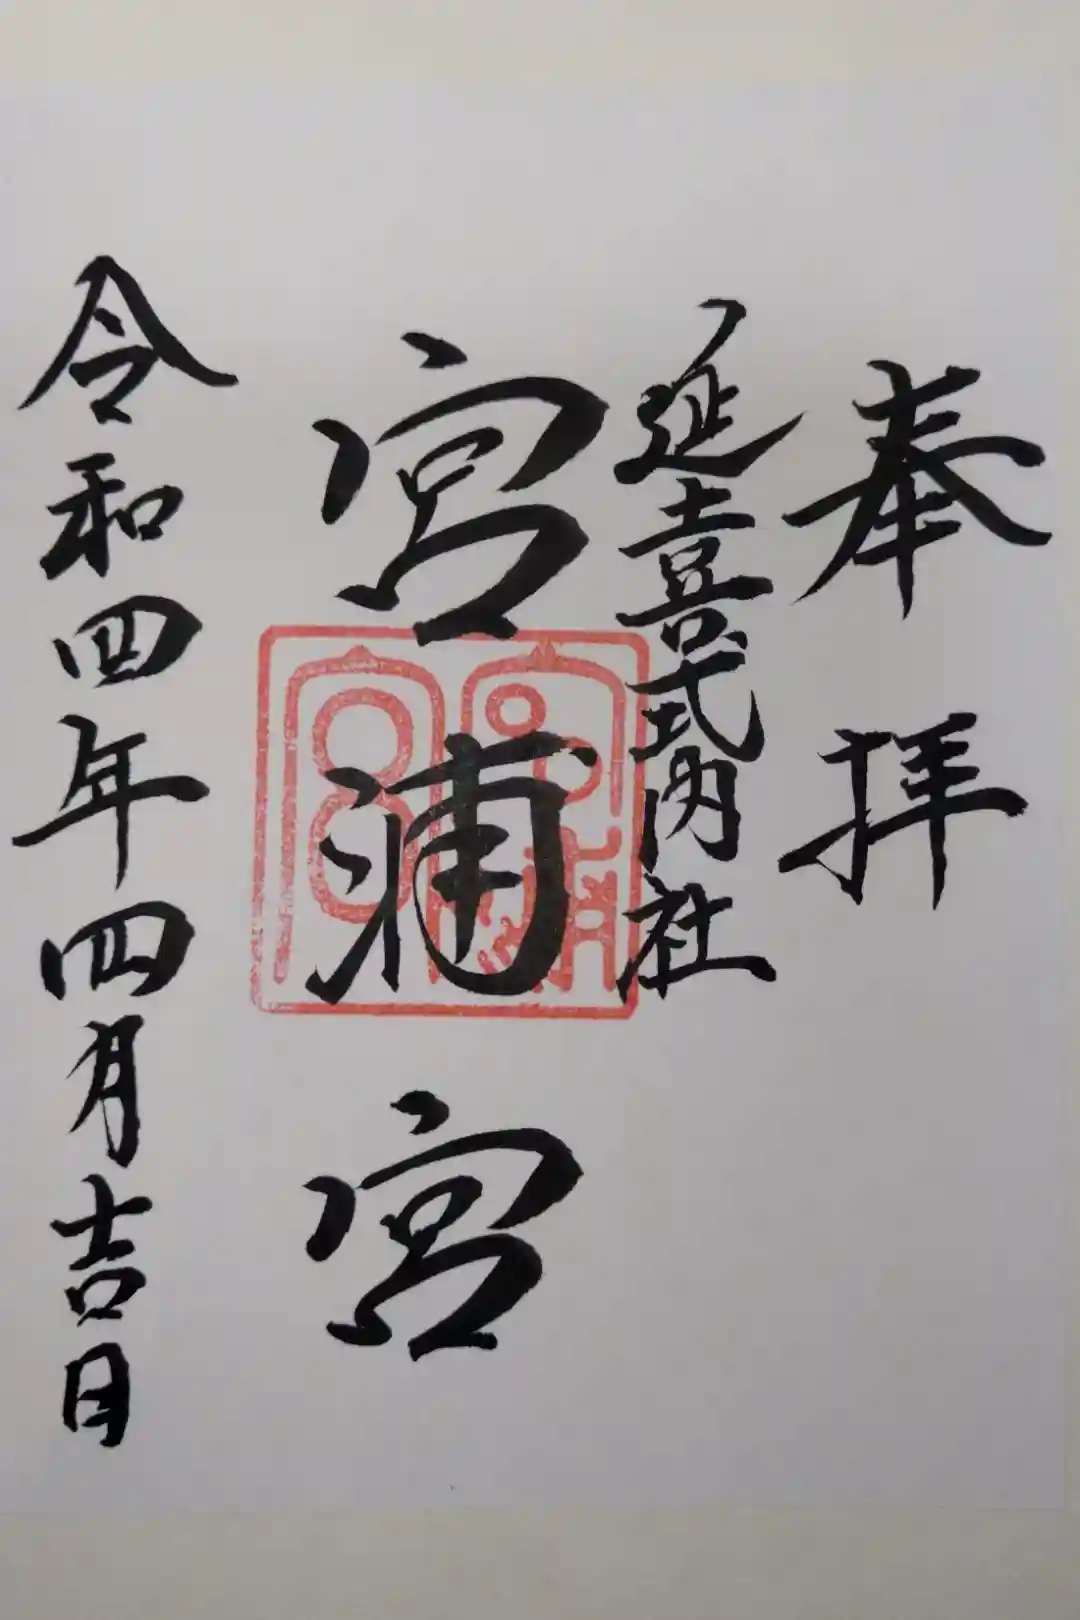 奉拝
延喜式内社
宮浦宮
令和四年四月吉日